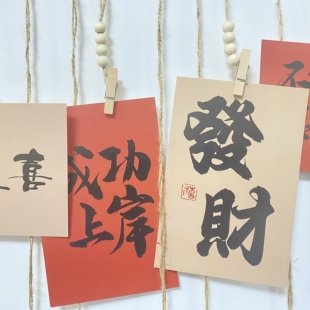 喜
成功
上岸
發
財